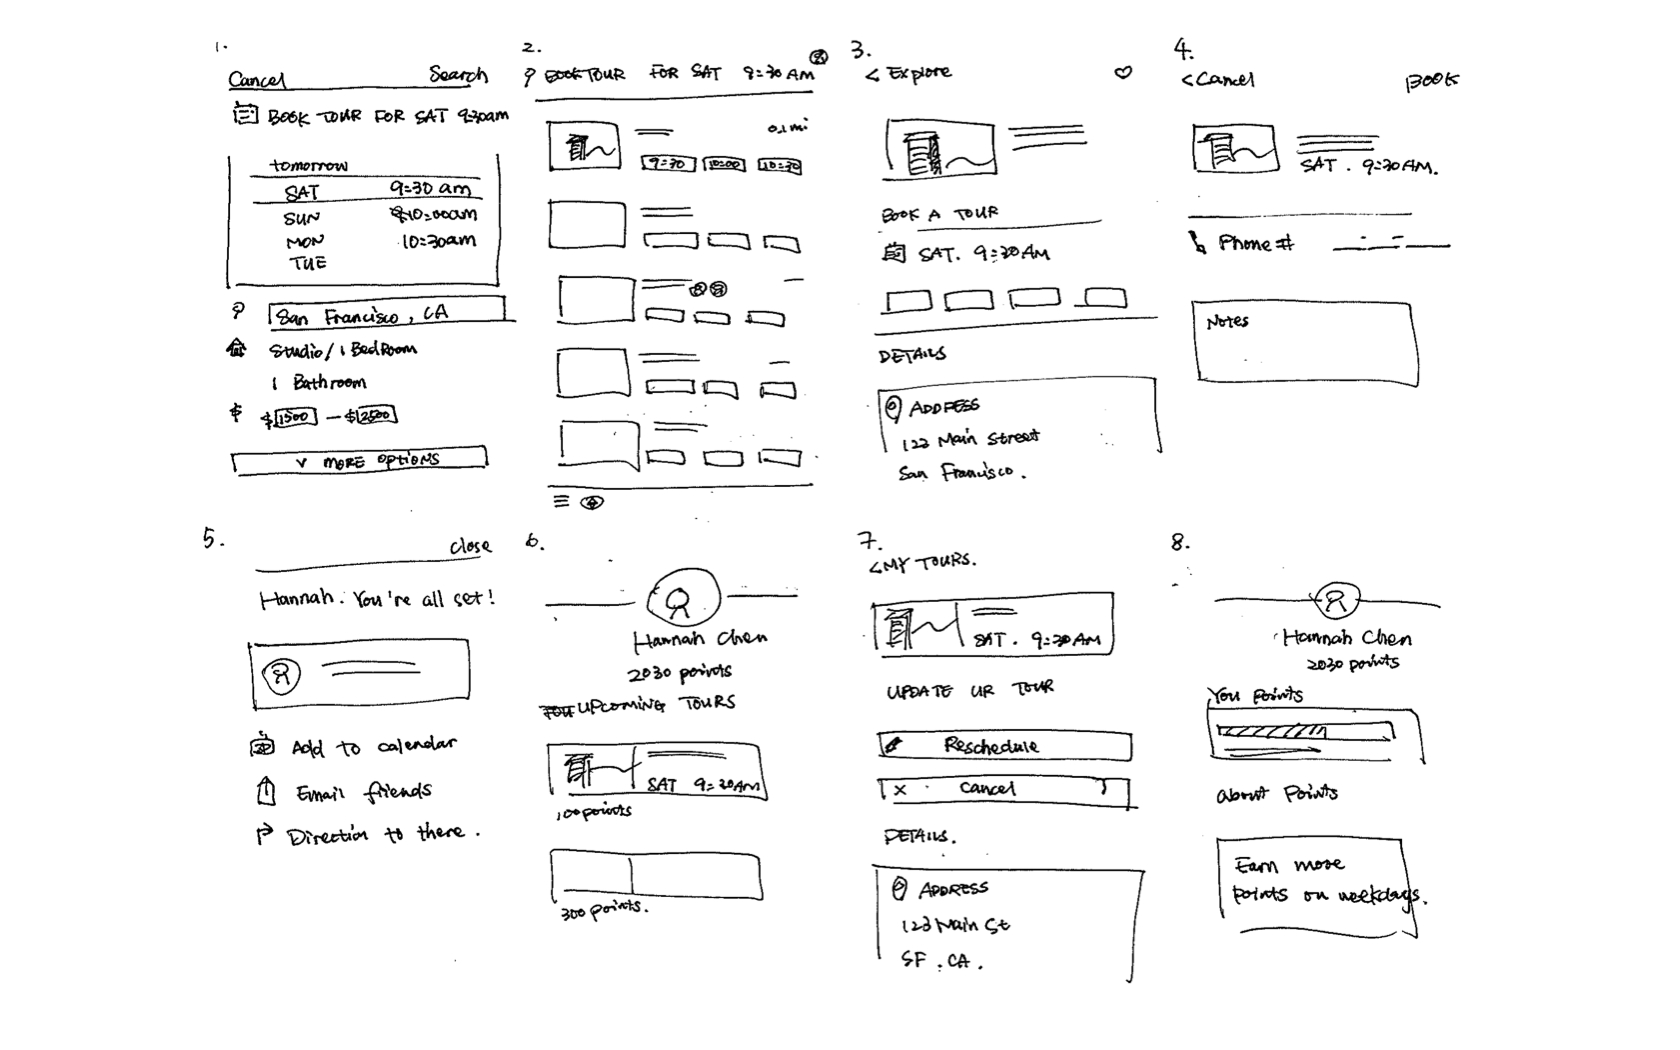 1.
Cancel Search
BOOK TOUR FOR SAT 9:30am
tomorrow
SAT 9:30 am
SUN 10:00am
MON 10:30am
TUE
San Francisco, CA
Studio/1 BedRoom
1 Bathroom
$ $1500 - $2500
v MORE OPTIONS
2.
BOOK TOUR FOR SAT 9:30 AM
0.1 mi
9:30 10:00 10:30
3.
< Explore
BOOK A TOUR
SAT. 9:30 AM
DETAILS
ADDRESS
123 Main Street
San Francisco.
4.
< Cancel BOOK
SAT. 9:30 AM.
Phone #
Notes
5.
close
Hannah. You're all set!
Add to calendar
Email friends
Direction to there.
6.
Hannah Chen
2030 points
UPCOMING TOURS
SAT 9:30AM
100 points
300 points.
7.
< MY TOURS.
SAT. 9:30 AM
UPDATE UR TOUR
Reschedule
x Cancel
DETAILS.
ADDRESS
123 Main St
SF. CA.
8.
Hannah Chen
2030 points
You points
about Points
Earn more
points on weekdays.